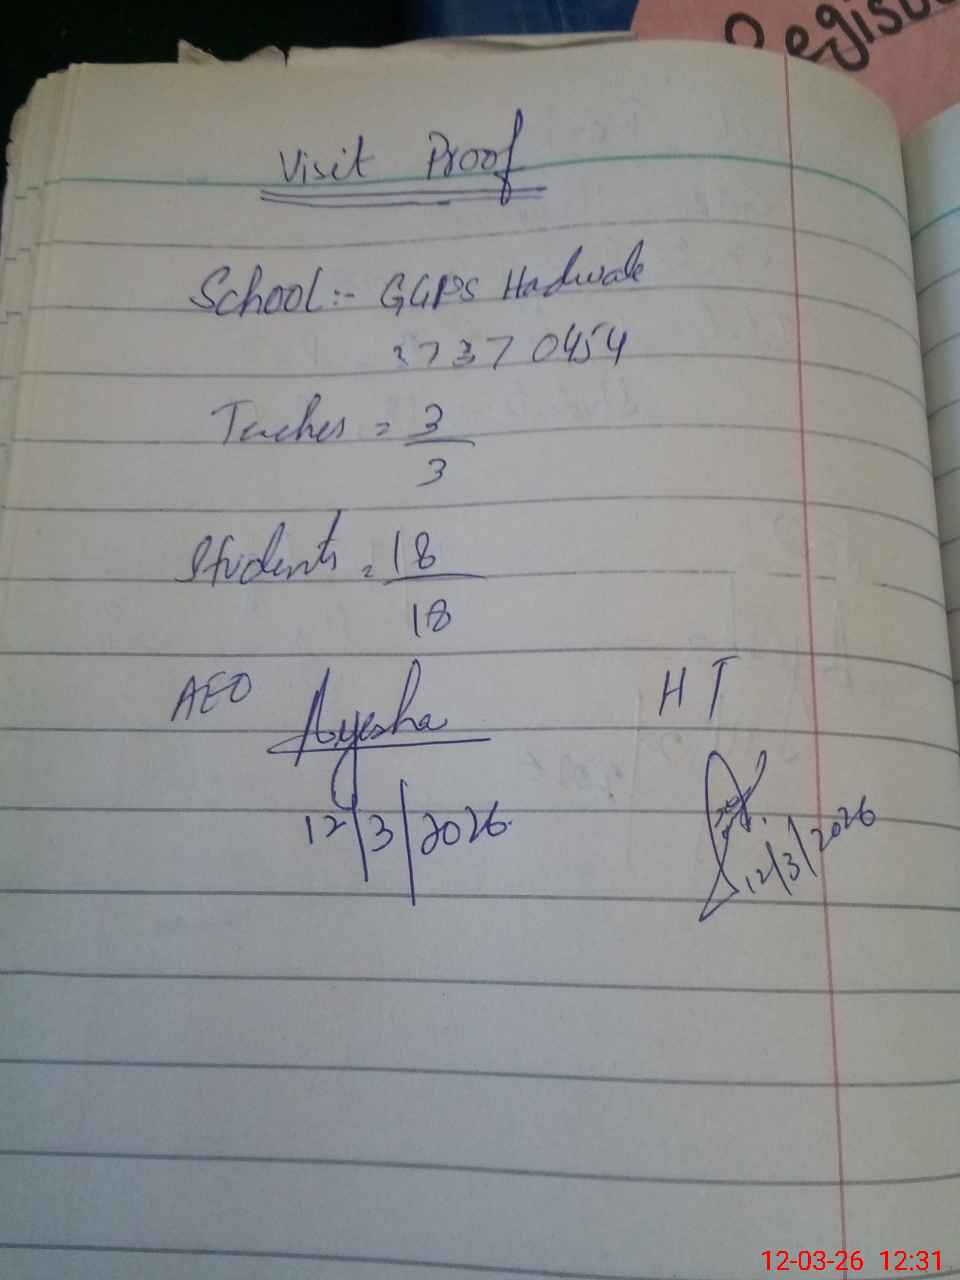 Regist
Visit Proof
School:- GGPS Hadwale
37370454
Teaches = 3
3
Students = 18
18
AEO Ayesha
12/3/2026
HT
12/3/2026
12-03-26 12:31